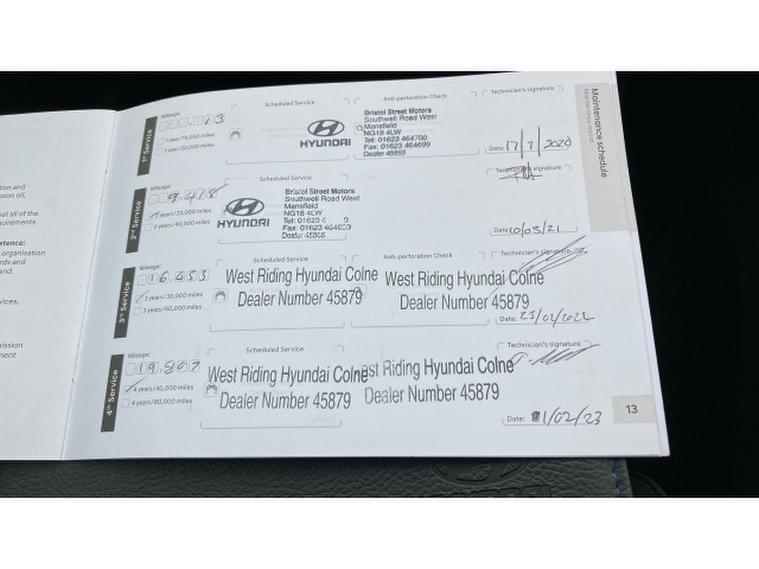 tion and
ssion oil,
at all of the
quirements
etence:
organisation
rds and
and
vices,
nission
ment
Maintenance schedule
Maintenance record
1st Service
Mileage:
13
1 year/10,000 miles
1 year/20,000 miles
Scheduled Service
HYUNDAI
Anti-perforation Check
Bristol Street Motors
Southwell Road West
Mansfield
NG18 4LW
Tel: 01623 464760
Fax: 01623 464699
Dealer 45868
Technician's signature
Date: 17/7/2020
2nd Service
Mileage:
9.418
2 years/20,000 miles
2 years/40,000 miles
Scheduled Service
HYUNDAI
Bristol Street Motors
Southwell Road West
Mansfield
NG18 4LW
Tel: 01623 4 0
Dealer 45868
Technician's signature
Date: 10/03/21
3rd Service
Mileage:
16.453
3 years/30,000 miles
3 years/60,000 miles
Scheduled Service
West Riding Hyundai Colne
Dealer Number 45879
Anti-perforation Check
West Riding Hyundai Colne
Dealer Number 45879
Technician's signature
Date: 25/02/2022
4th Service
Mileage:
19.807
4 years/40,000 miles
4 years/80,000 miles
Scheduled Service
West Riding Hyundai Colne
Dealer Number 45879
est Riding Hyundai Colne
Dealer Number 45879
Technician's signature
Date: 1/02/23
13